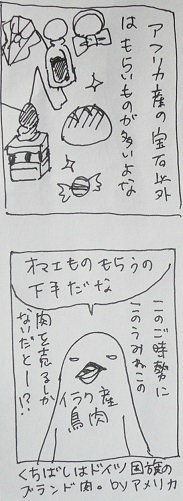 アフリカ産の宝石以外
はもらいものが多いよな
オマエものもらうの
下手だな
このご時勢に
このうみねこの
肉を売るか
ないだとー!?
イラク産
鳥肉
くちばしはドイツ国旗の
ブランド肉。byアメリカ